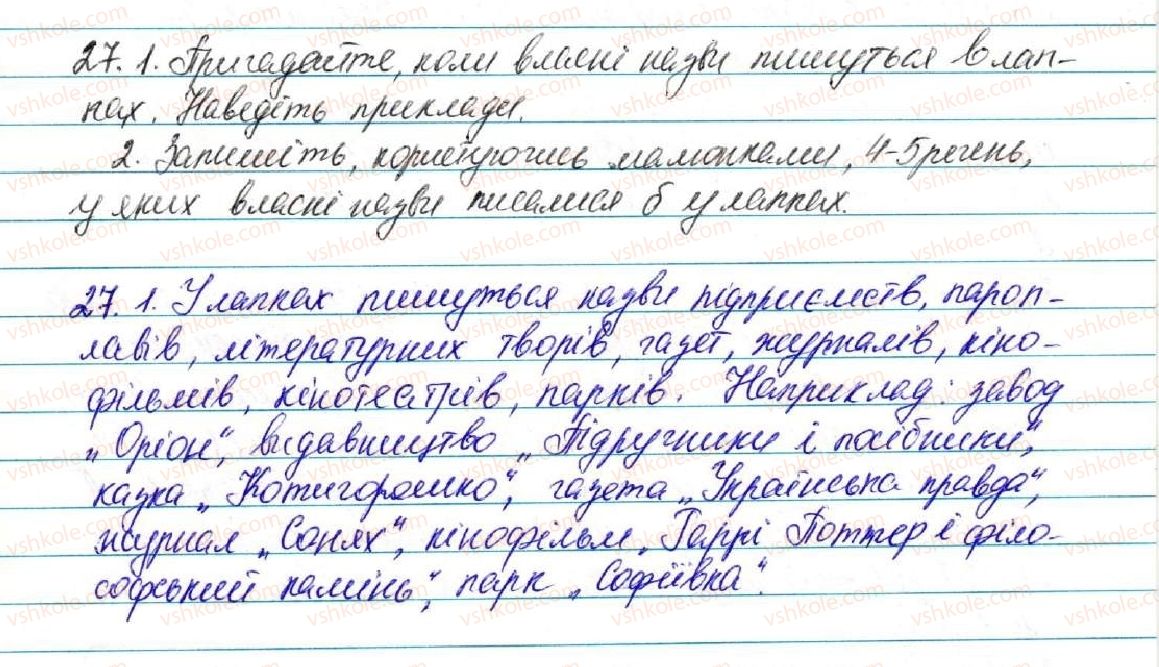 27. 1. Пригадайте, коли власні назви пишуться в лап-
ках. Наведіть приклади.
2. Запишіть, користуючись малюнками, 4-5 речень,
у яких власні назви писалися б у лапках.
27. 1. У лапках пишуться назви підприємств, пароп-
лавів, літературних творів, газет, журналів, кіно-
фільмів, кінотеатрів, парків. Наприклад: завод
„Оріон", видавництво „Підручники і посібники",
казка „Котигорошко", газета „Українська правда",
журнал „Сонях", кінофільм „Гаррі Поттер і філо-
софський камінь", парк „Софіївка".